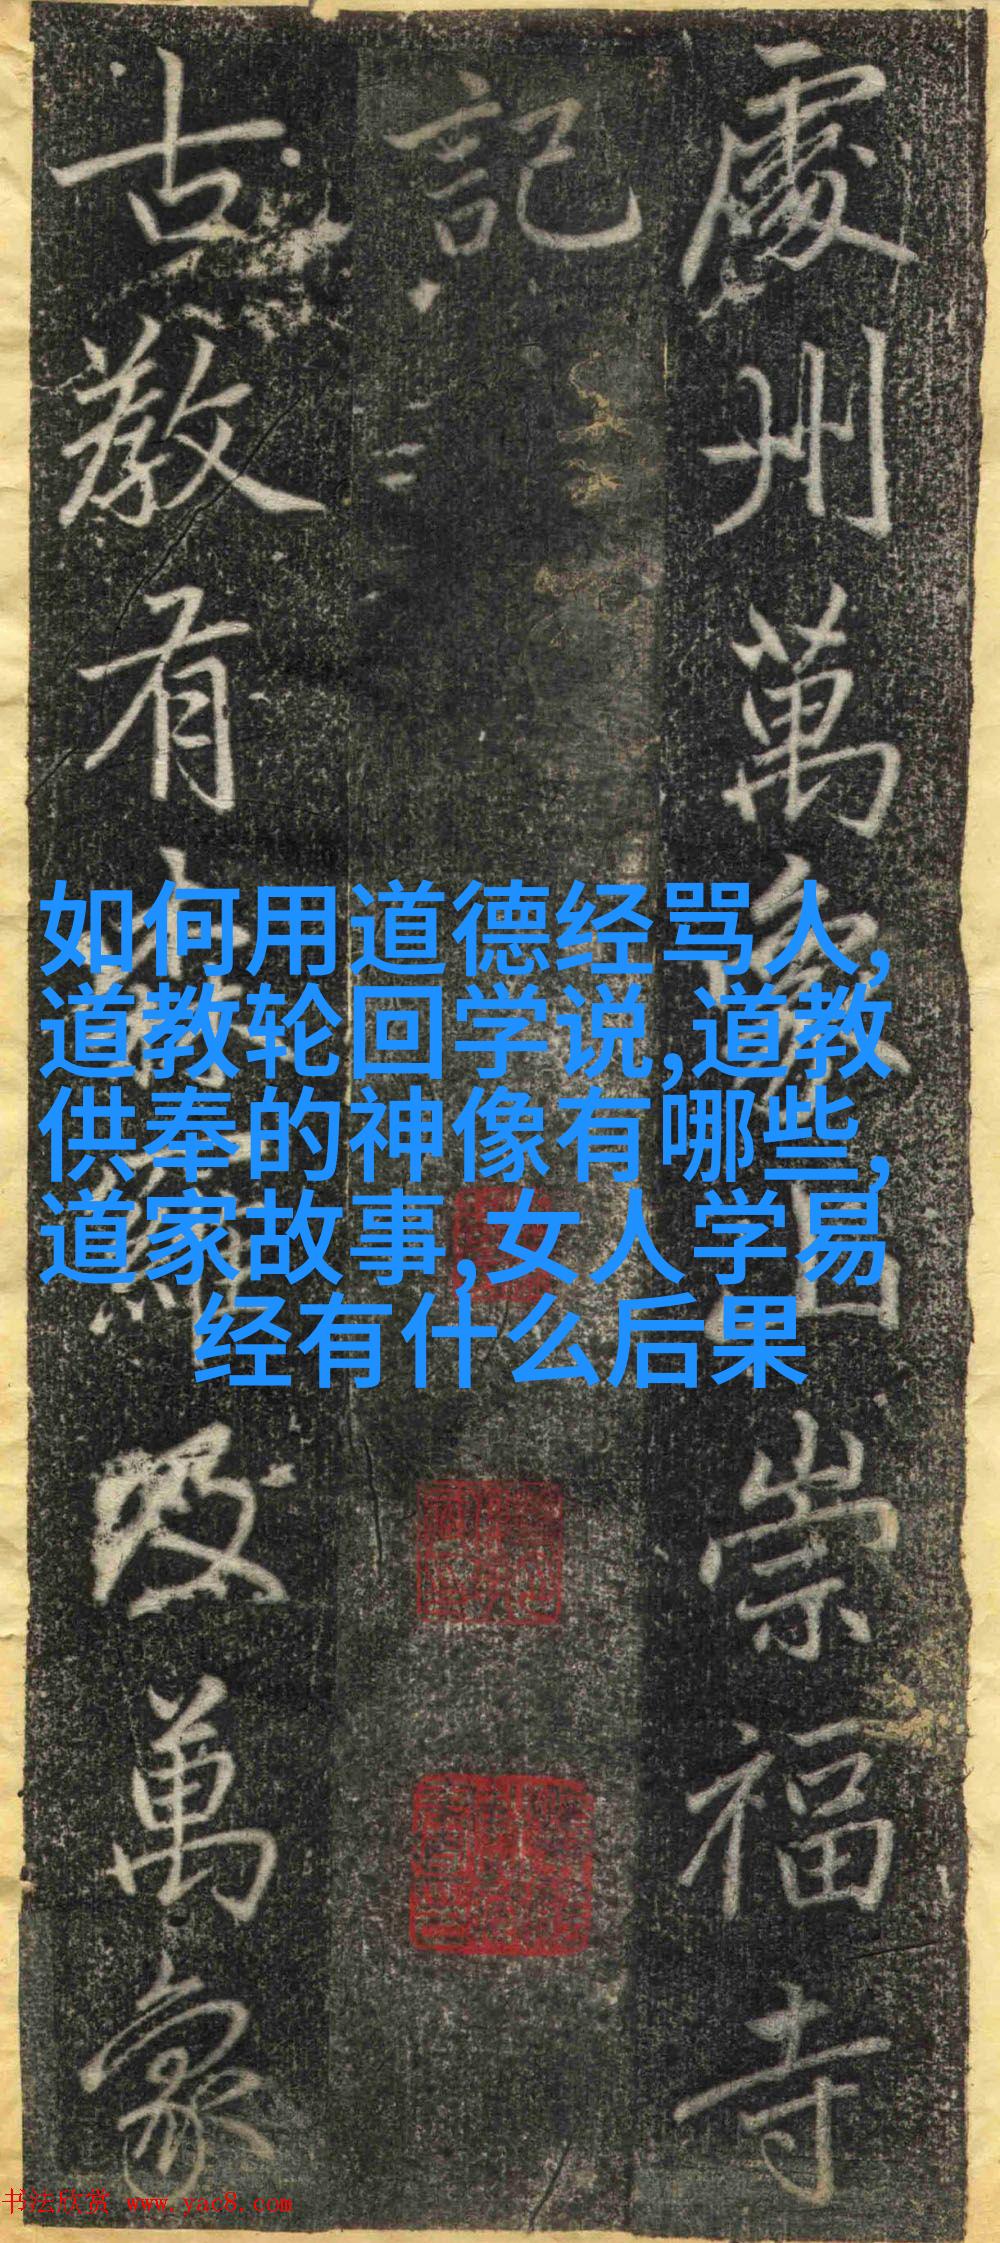 處州萬象山崇福寺
記
古教有
及萬象
如何用道德经骂人,
道教轮回学说,道教
供奉的神像有哪些,
道家故事,女人学易
经有什么后果
书法欣赏 www.yac8.com